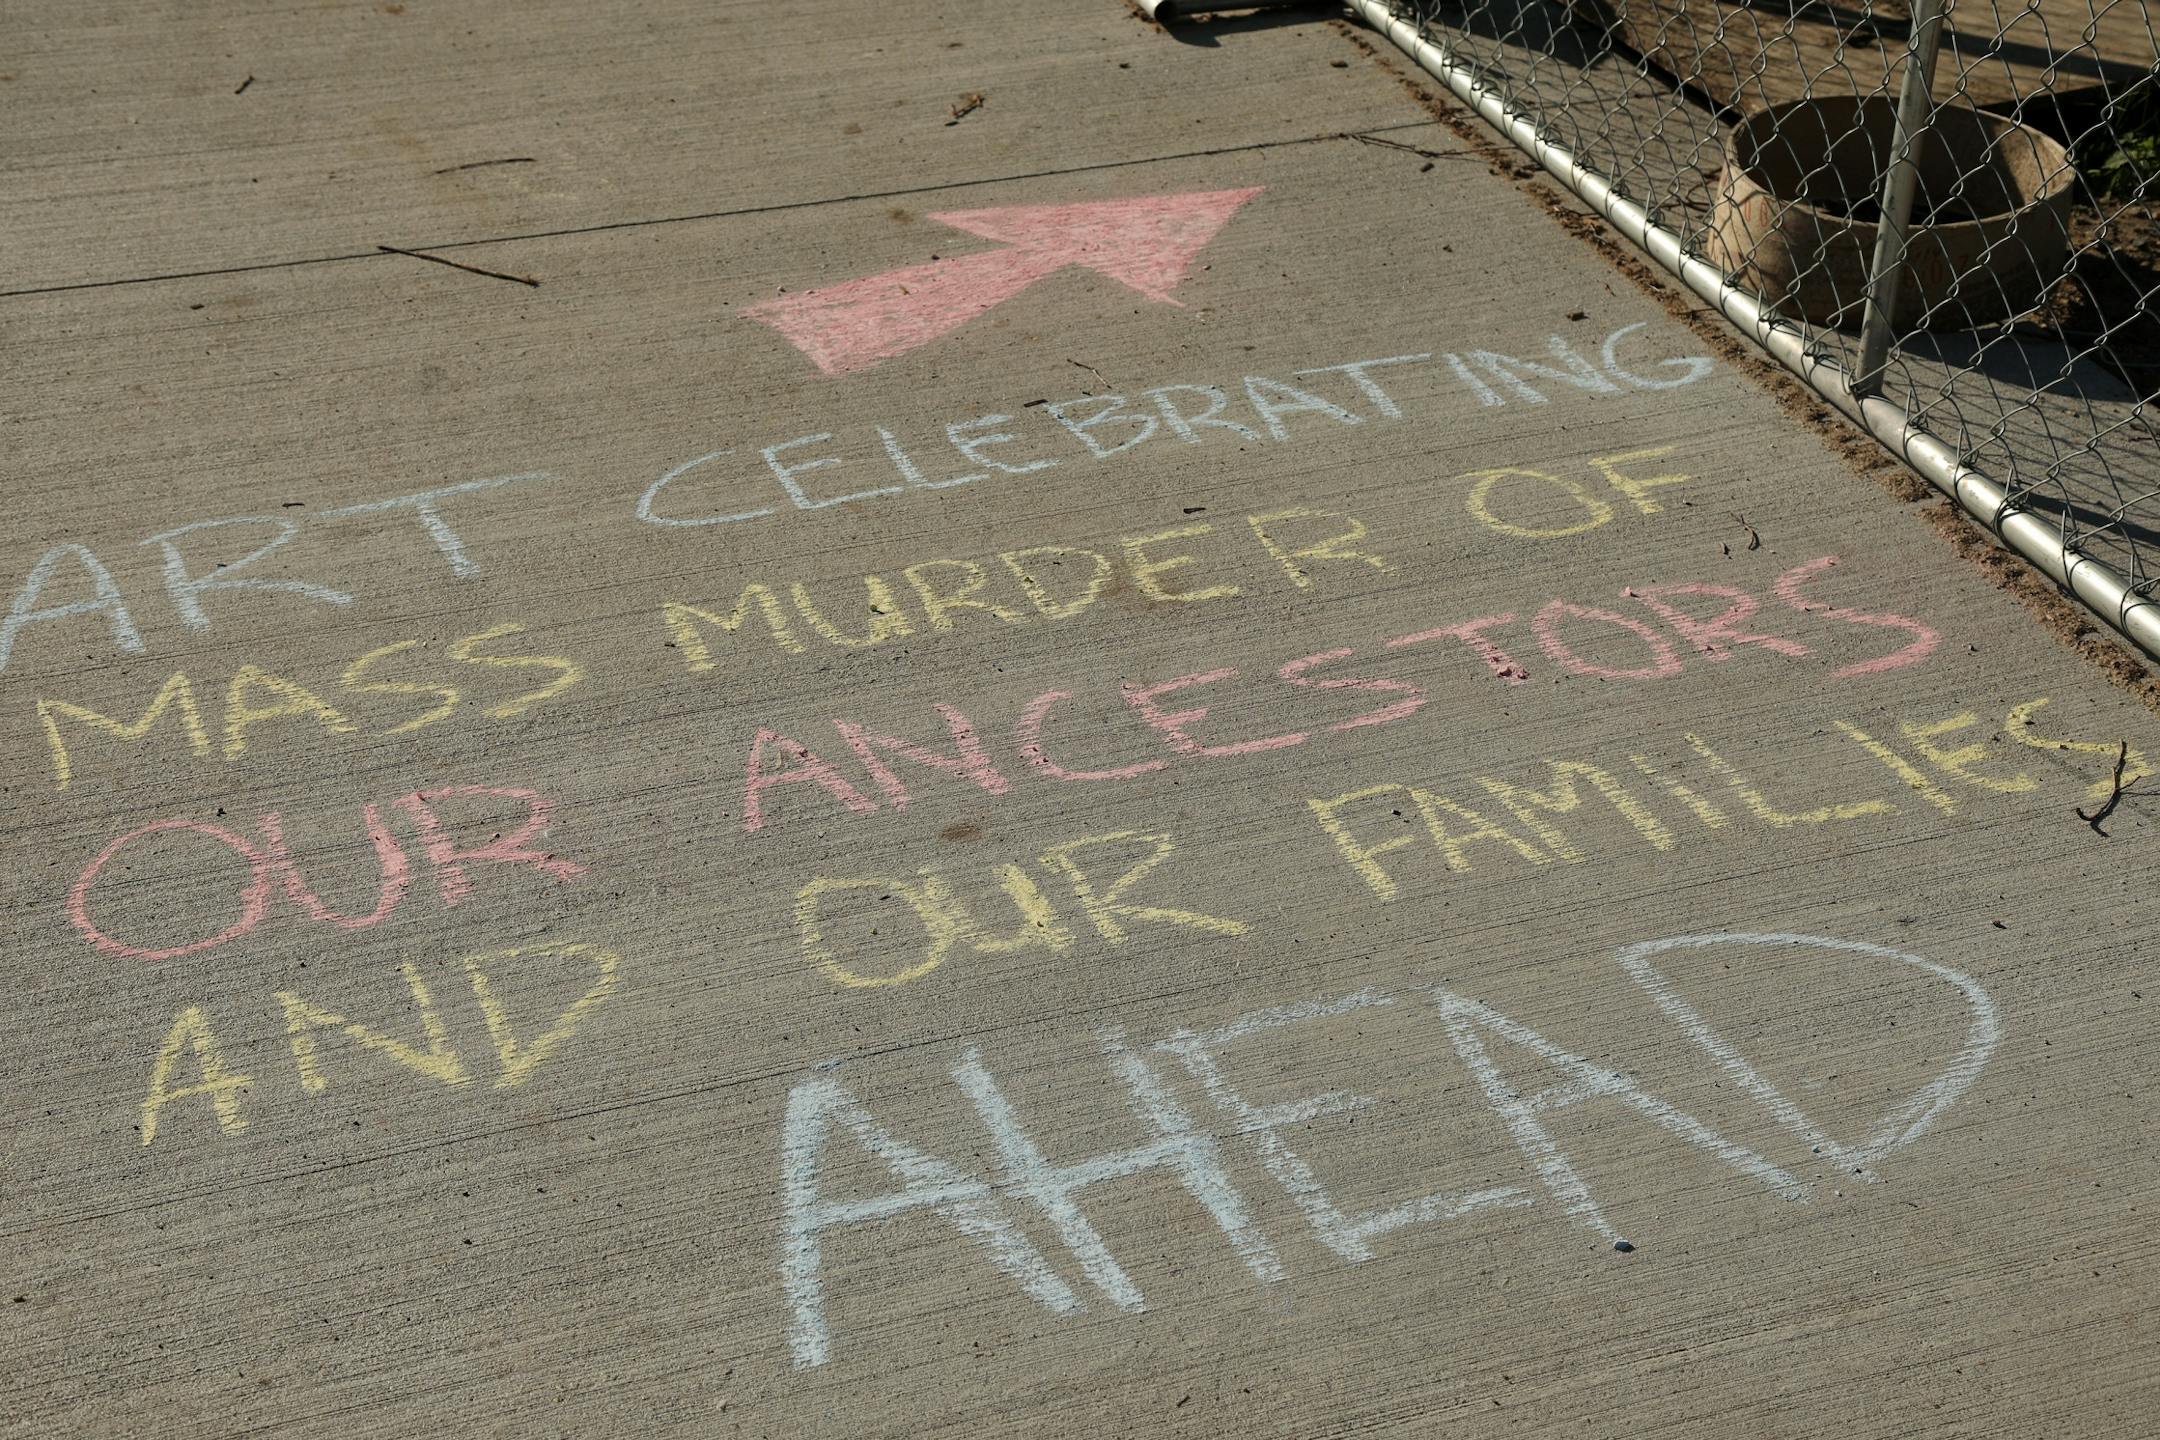 ART CELEBRATING
MASS MURDER OF
OUR ANCESTORS
AND OUR FAMILIES
AHEAD